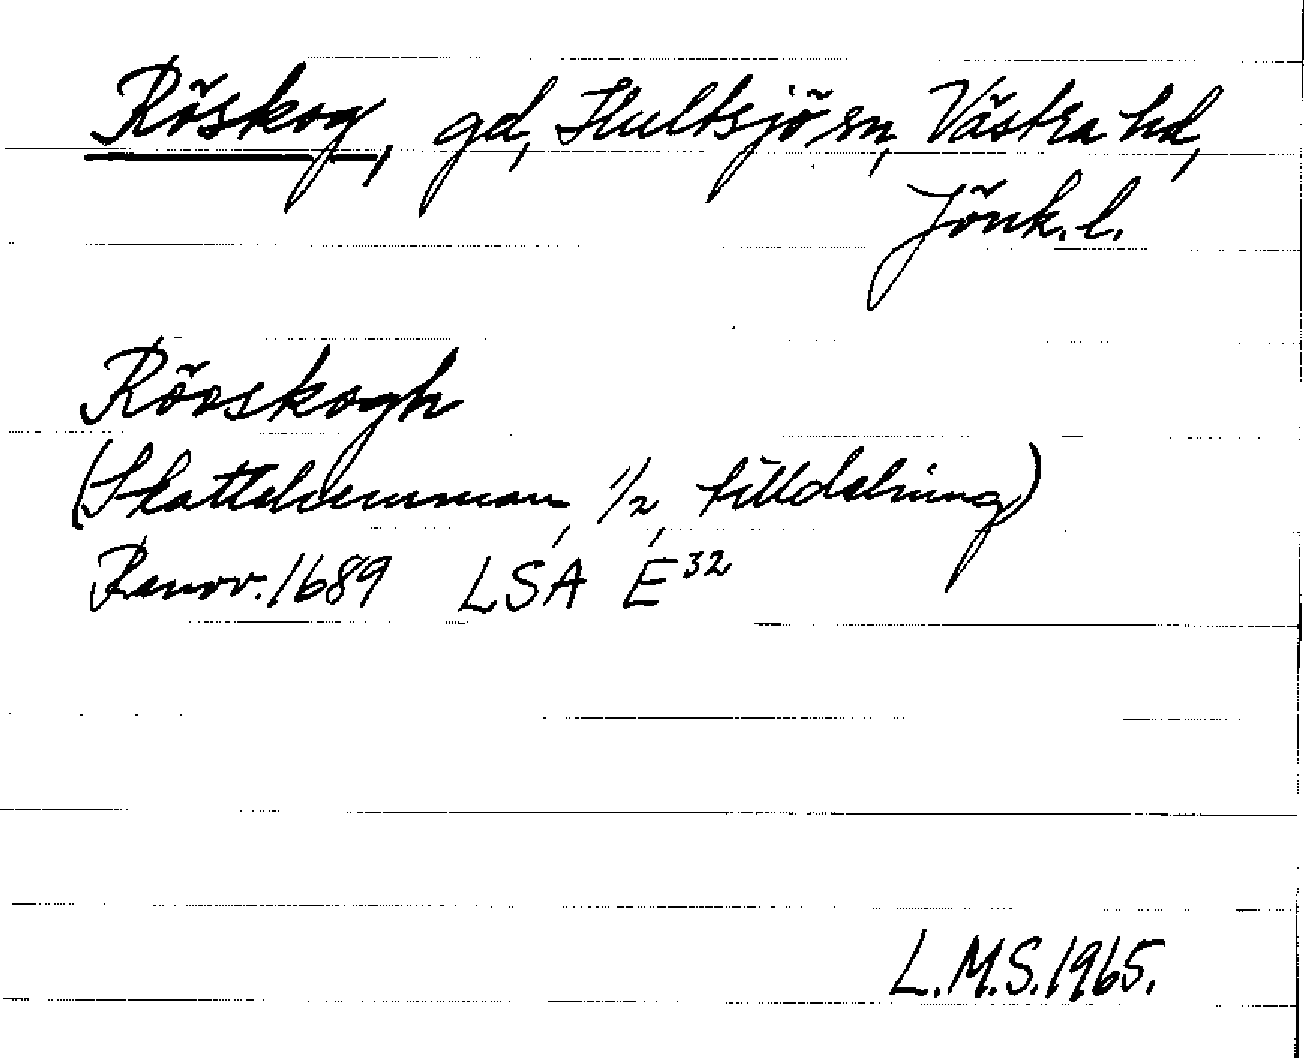 Röskog, gd, Hultsjö sn, Västra hd,
Jönk. l.
Röoskogh
(Skattehemman, 1/2, tilldelning)
Renov. 1689 LSA E32
L.M.S. 1965.